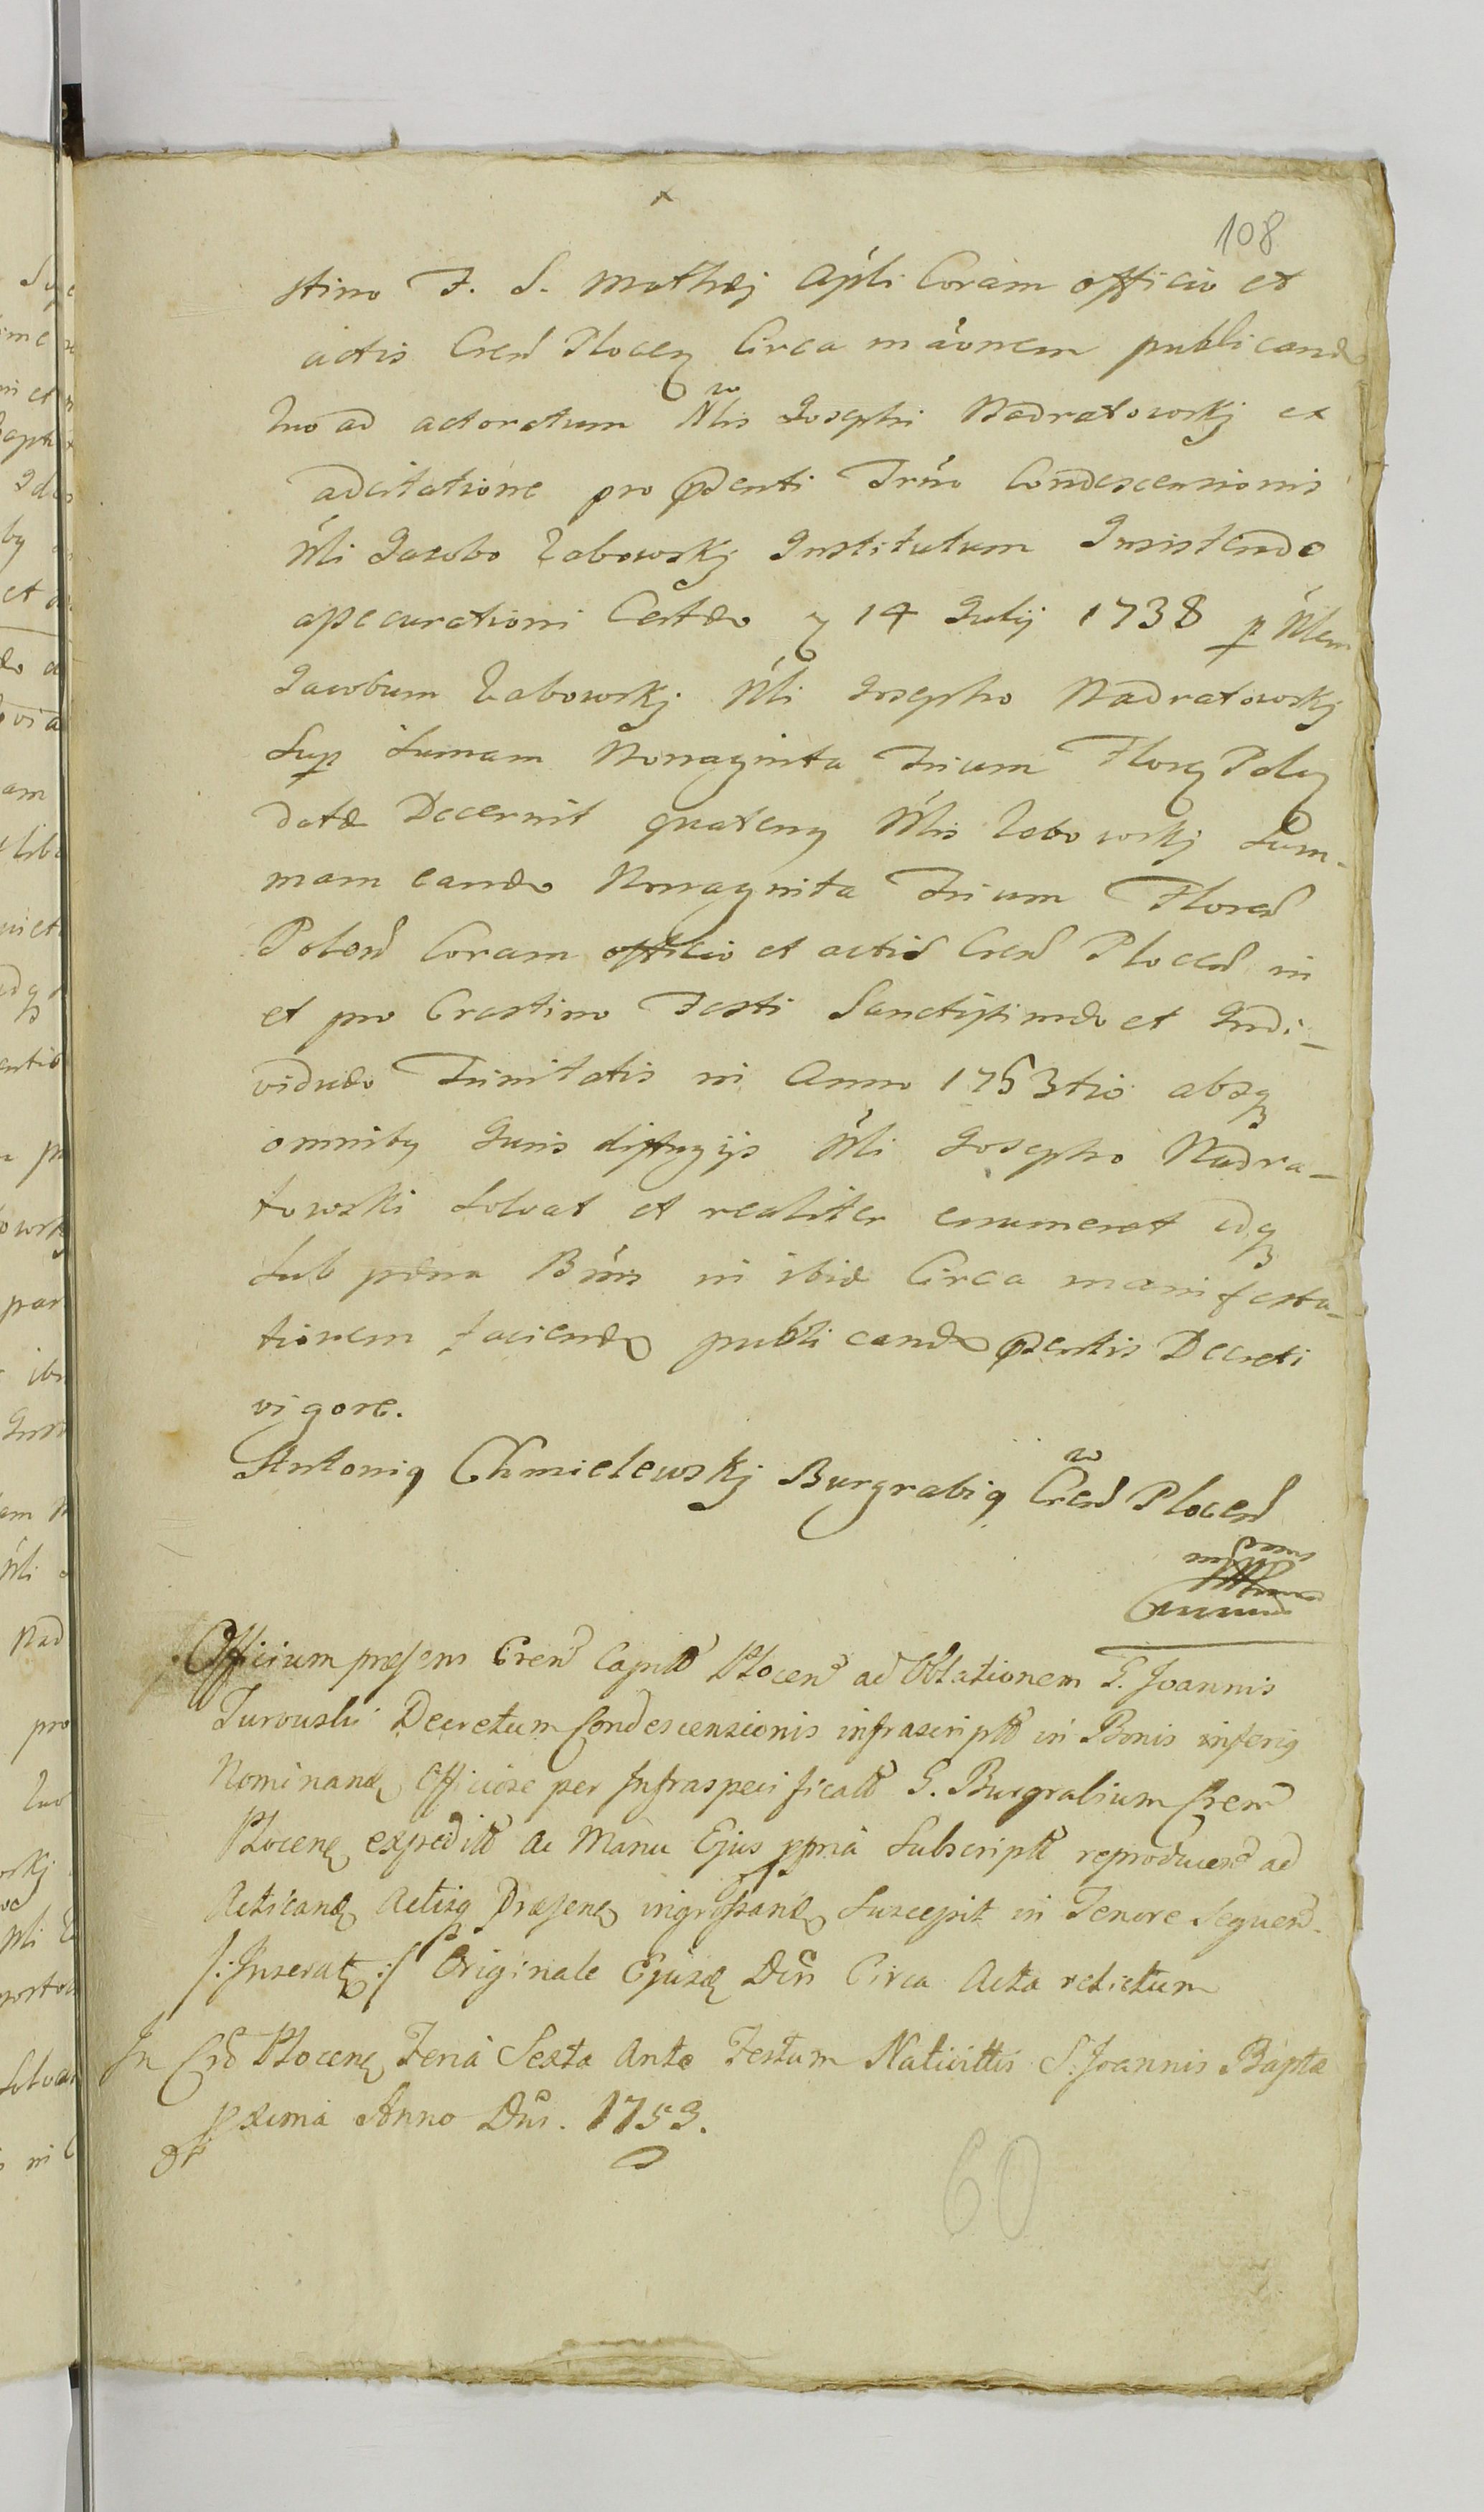 108
stino F. S. Mathæj Apli Coram officio et
actis Cren Plocen Circa maonem publicand
Quo ad actoratum Nlis Josephi Nadratowskj ex
adcitatione pro pdenti Trno Condescensionis
Nli Jacobo Zabowskj Institutum Insistendo
apecurationi Certæ 14 Julij 1738 p Nlem
Jacobum Zabowskj Nli Josepho Nadratowskj
Sup Sumam Nonaginta Trium Floren Polen
datæ Decernit quatenq Nlis Zabowskj Sum-
mam eande Nonaginta Trium Floren
Polen Coram officio et actis Cren Plocen in
et pro Crastino Festi Sanctissimæ et Indi-
viduæ Trinitatis in Anno 1753tio absq
omnibq Juris diffugijs Nli Josepho Nadra-
towski Solvat et realiter enumeret idq
Sub pæna Bnis in ibid Circa manifesta-
tionem faciend publicand pdentis Decreti
vigore.
Antoniq Chmielewskj Burgrabiq Cren Plocen
Officium præsens Cren Capitt Plocen ad Oblationem G. Joannis
Turowski Decretum Condescensionis infrascriptt in Bonis inferiq
Nominand Officiose per Infraspecificatt G. Burgrabium Cren
Plocen expeditt ac Manu Ejus ppria Subscriptt reproducend ad
Acticand Actisq Præsen ingrossand Suscepit in Tenore Sequen.
/: Inserat :/ Originale Ejusd Dcti Circa Acta relictum
In Cro Plocen Feria Sexta Ante Festum Nativittis S. Joannis Baptæ
pxima Anno Dni. 1753.
60